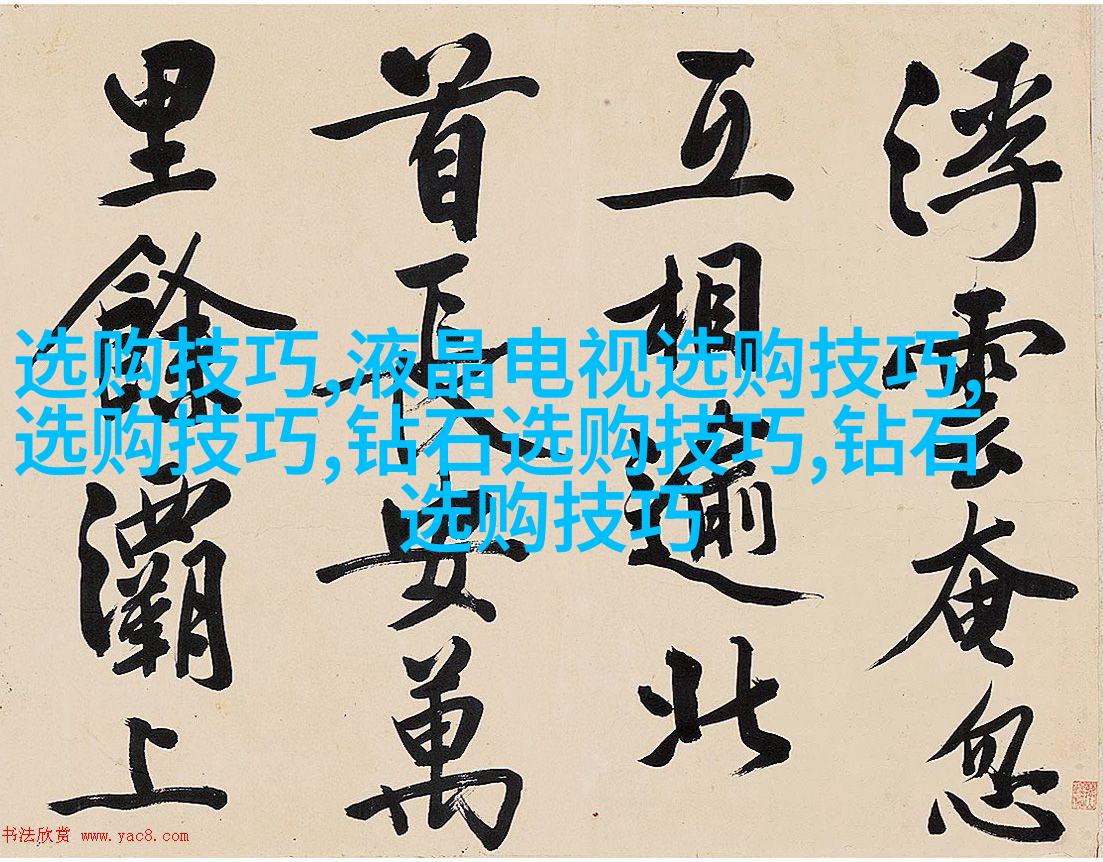 浮雲奄忽
互相逾北
首長安萬
里餘灞上
选购技巧,液晶电视选购技巧,
选购技巧,钻石选购技巧,钻石
选购技巧
书法欣赏 www.yac8.com